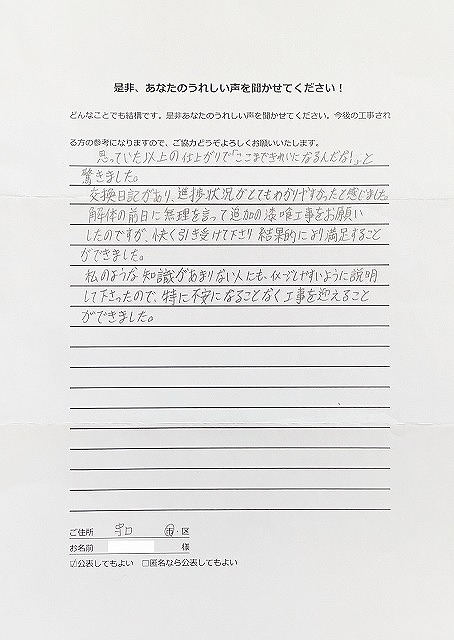 是非、あなたのうれしい声を聞かせてください！
どんなことでも結構です。是非あなたのうれしい声を聞かせてください。今後の工事され
る方の参考になりますので、ご協力どうぞよろしくお願いいたします。
思っていた以上の仕上がりで「ここまできれいになるんだな！」と
驚きました。
交換日記があり、進捗状況がとてもわかりやすかったと感じました。
解体の前日に無理を言って追加の漆喰工事をお願い
したのですが、快く引き受けて下さり結果的により満足すること
ができました。
私のような知識があまりない人にも、イメージしやすいように説明
して下さったので、特に不安になることなく工事を迎えること
ができました。
ご住所 守口 市・区
お名前 様
☑公表してもよい □匿名なら公表してもよい